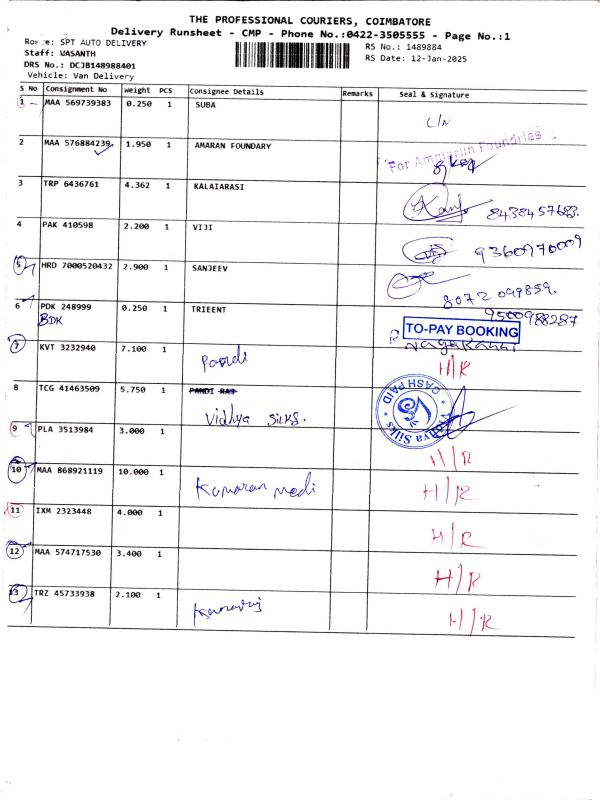 THE PROFESSIONAL COURIERS, COIMBATORE
Delivery Runsheet - CMP - Phone No.:0422-3505555 - Page No.:1
Route: SPT AUTO DELIVERY RS No.: 1489884
Staff: WASANTH RS Date: 12-Jan-2025
DRS No.: DCJB148988401
Vehicle: Van Delivery
S No Consignment No Weight PCS Consignee Details Remarks Seal & Signature
1 MAA 569739383 0.250 1 SUBA
C/N
2 MAA 576884239 1.950 1 AMARAN FOUNDARY For Ammarun Foundries
3 TRP 6436761 4.362 1 KALAIARASI 8438457683.
4 PAK 410598 2.200 1 VIJI 9360970009
5 HRD 7000520432 2.900 1 SANJEEV 8072099859.
6 PDK 248999 0.250 1 TRIEENT 9500988287
BDK TO-PAY BOOKING
7 KVT 3232940 7.100 1 Pandi H/R
8 TCG 41463509 5.750 1 PANDI RAJ CASH PAID Vidhya Silks
Vidhya Silks.
9 PLA 3513984 3.000 1 H/R
10 MAA 868921119 10.000 1 Kumaran Medi H/R
11 IXM 2323448 4.000 1 H/R
12 MAA 574717530 3.400 1 H/R
13 TRZ 45733938 2.100 1 Kamaraj H/R